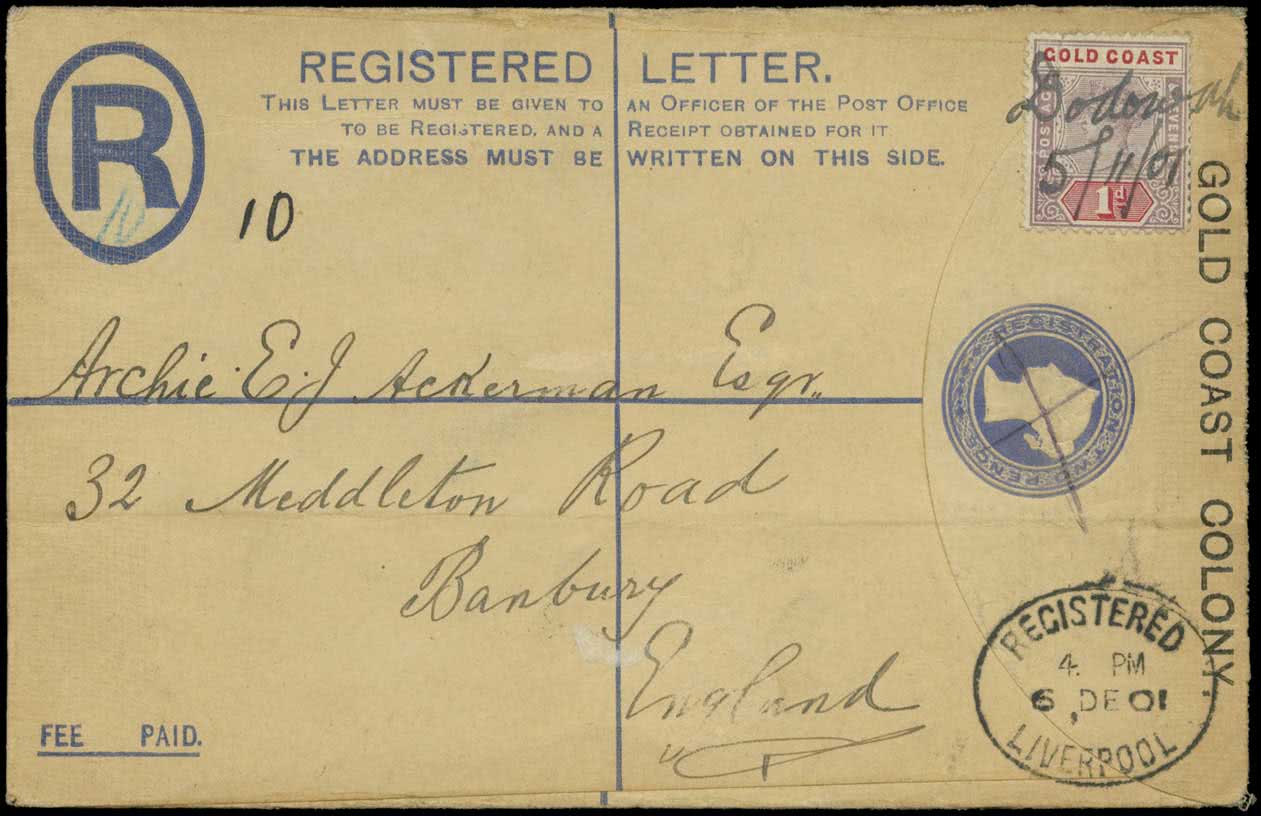 REGISTERED LETTER.
THIS LETTER MUST BE GIVEN TO AN OFFICER OF THE POST OFFICE
TO BE REGISTERED, AND A RECEIPT OBTAINED FOR IT
THE ADDRESS MUST BE WRITTEN ON THIS SIDE.
R
10
10
GOLD COAST
POSTAGE
REVENUE
1d
Dodowah
5/11/01
GOLD COAST COLONY.
REGISTRATION TWO PENCE
Archie. E. J Ackerman Esqr.
32 Meddleton Road
Banbury
England
REGISTERED
4. PM
6 DE 01
LIVERPOOL
FEE PAID.